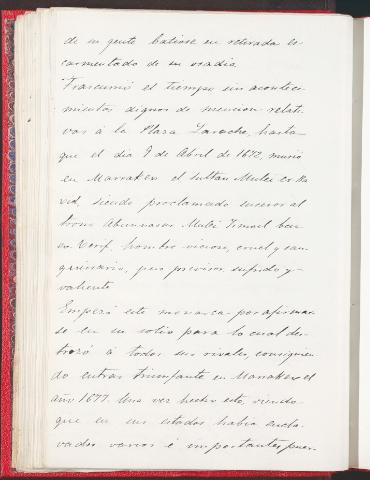 de su gente batirse en retirada es-
carmentado de su osadia.
Trascurrió el tiempo sin aconteci-
mientos dignos de mencion relati-
vos á la Plaza Larache, hasta
que el dia 9 de Abril de 1672, murió
en Marraken el sultan Mulei er Ra
xid, siendo proclamado sucesor al
trono Mulei Ismail ben
ex Xerif, hombre vicioso, cruel y san-
guinario, pero previsor sufrido y
valiente.
Empezó este monarca por afirmar-
se en su solio para lo cual des-
trozó á todos sus rivales, consiguien
do entrar triunfante en Marraken el
año 1677. Una vez hecho esto, viendo
que en sus estados habia encla-
vados varios é importantes puer-